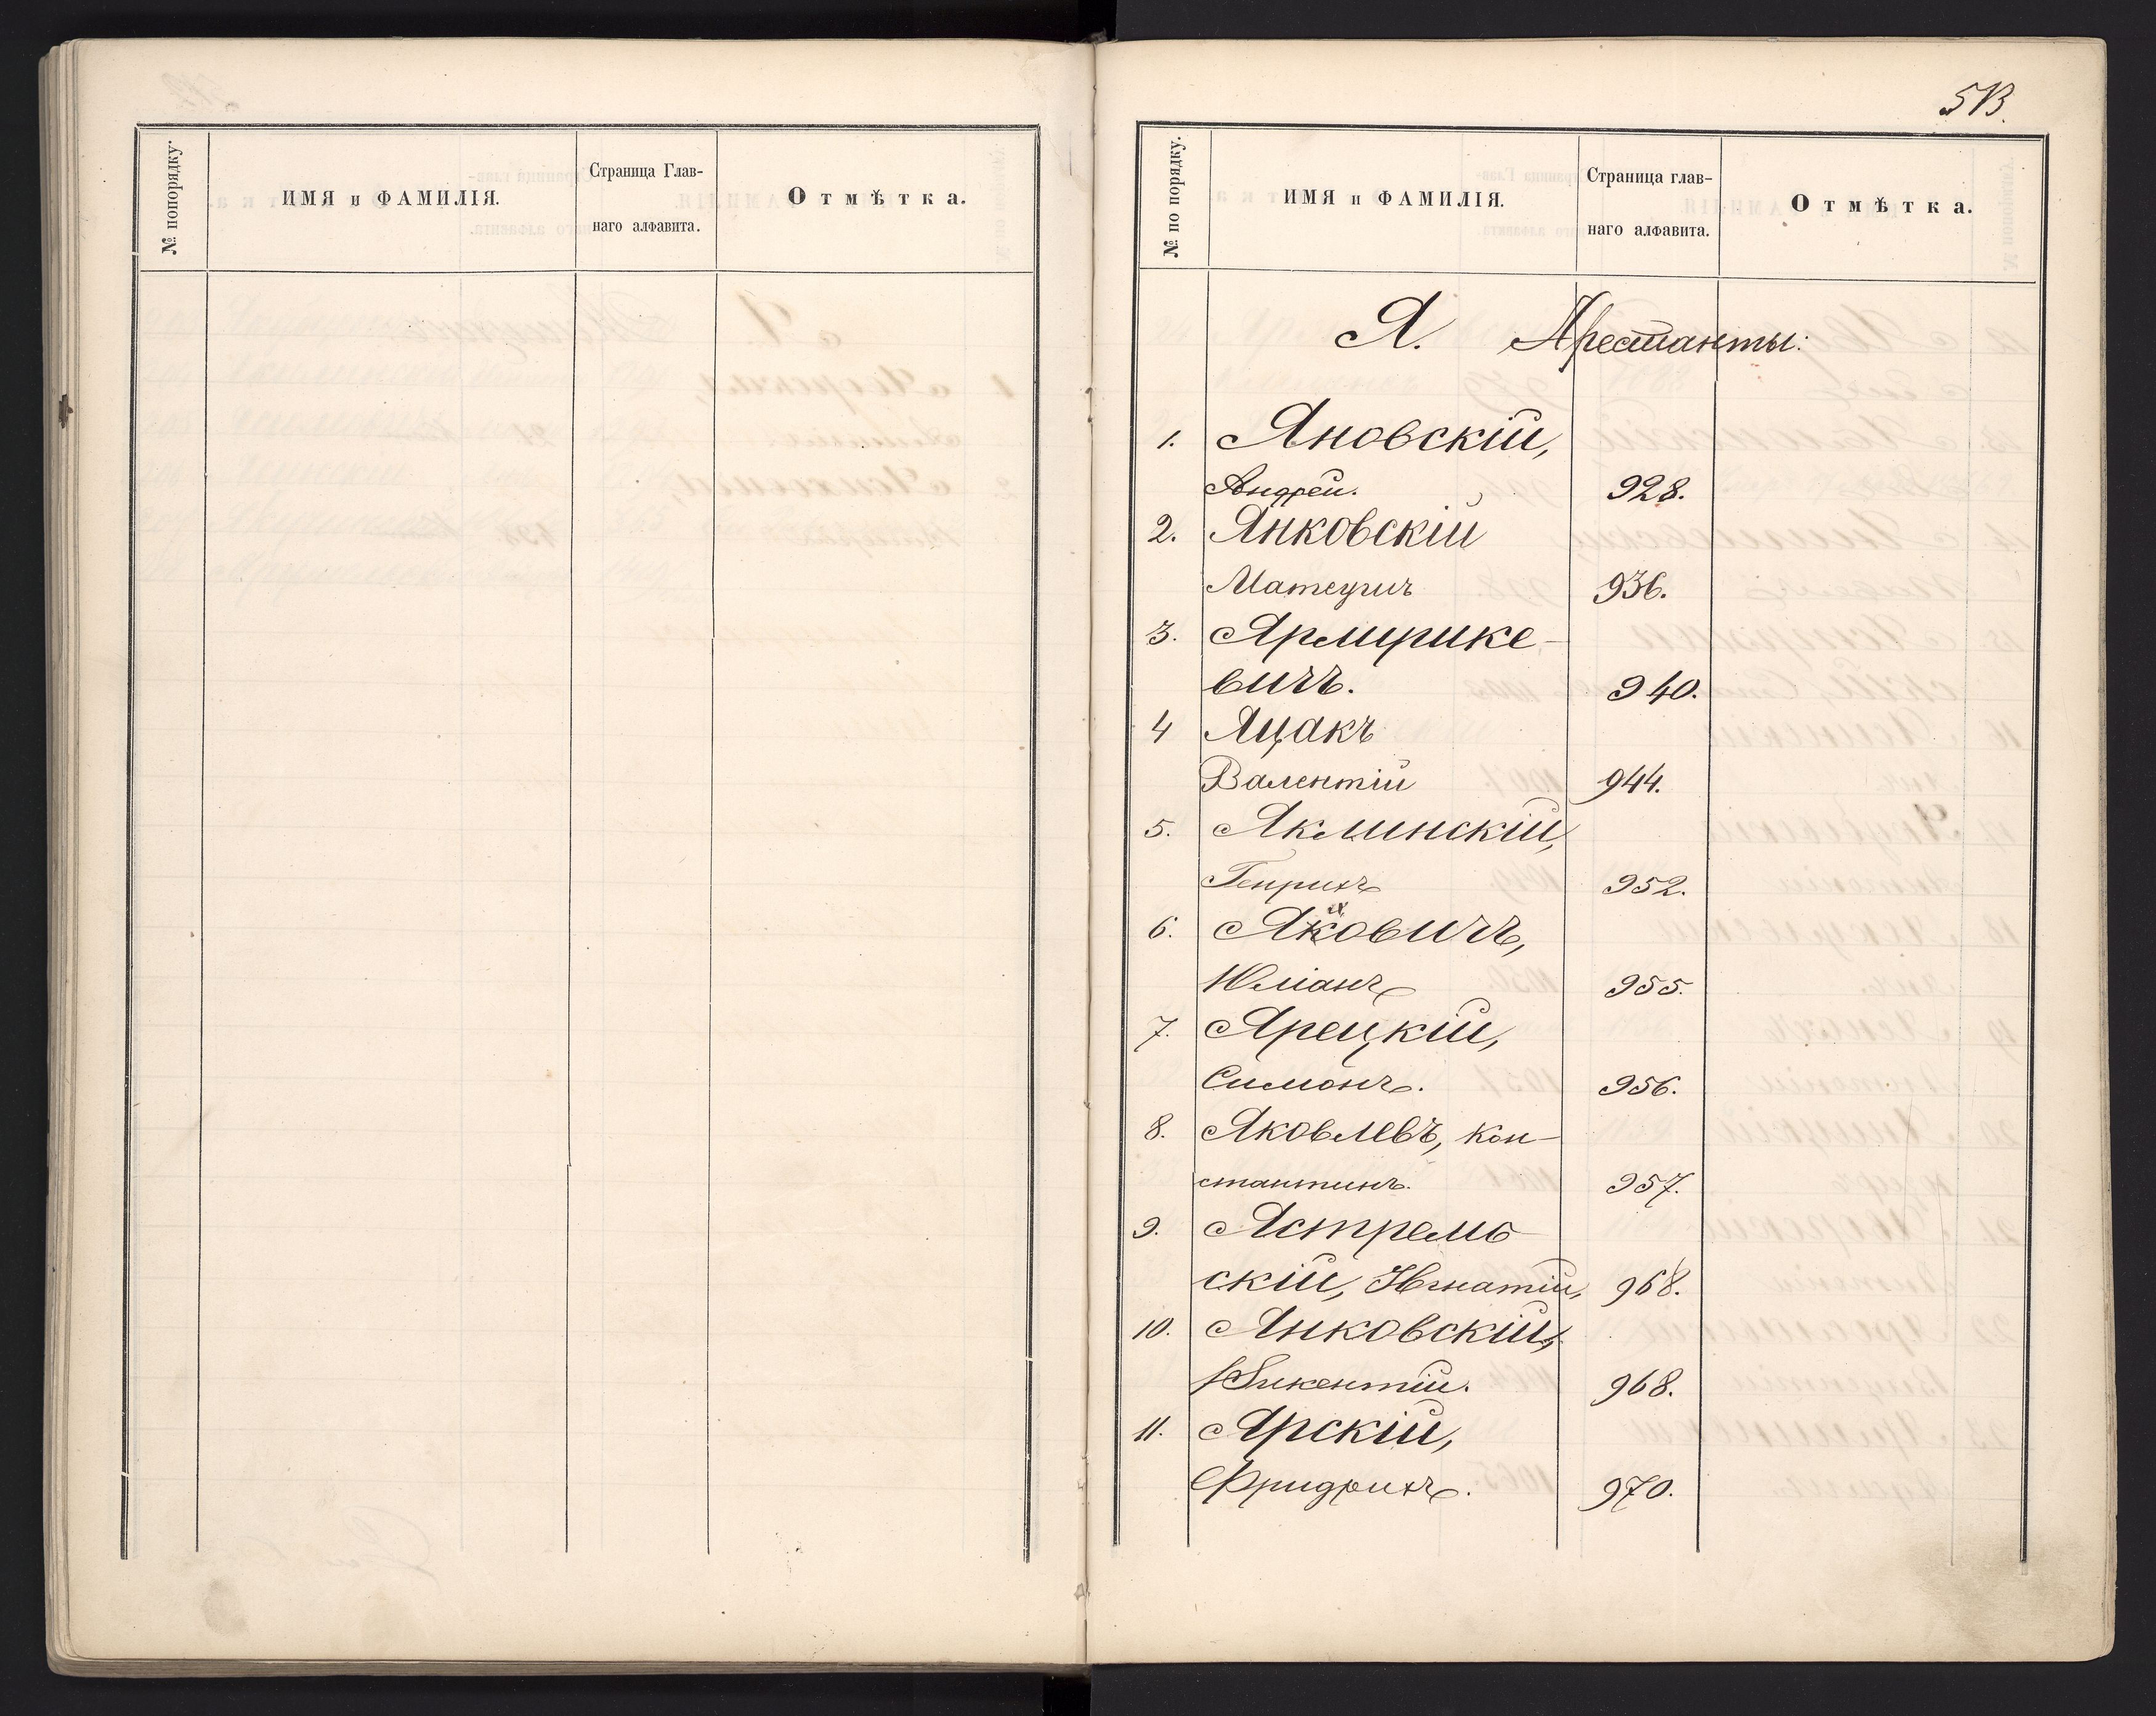 № попорядку.
ИМЯ и ФАМИЛІЯ.
Страница Глав-
наго алфавита.
Отмѣтка.
513.
№ по порядку.
ИМЯ и ФАМИЛІЯ.
Страница глав-
наго алфавита.
Отмѣтка.
Я. Арестанты:
1. Яновскій,
Андрей. 928.
2. Янковскій
Матеушъ 936.
3. Ярмушке-
вичъ. 940.
4 Яцакъ
Валентій 944.
5. Яклинскій,
Генрихъ 952.
6. Яковичъ,
Юліанъ 955.
7. Ярецкій,
Симонъ. 956.
8. Яковлевъ, Кон-
стантинъ. 957.
9. Ястремб
скій, Игнатій, 968.
10. Янковскій,
Викентій. 968.
11. Ярскій,
Фридрихъ. 970.